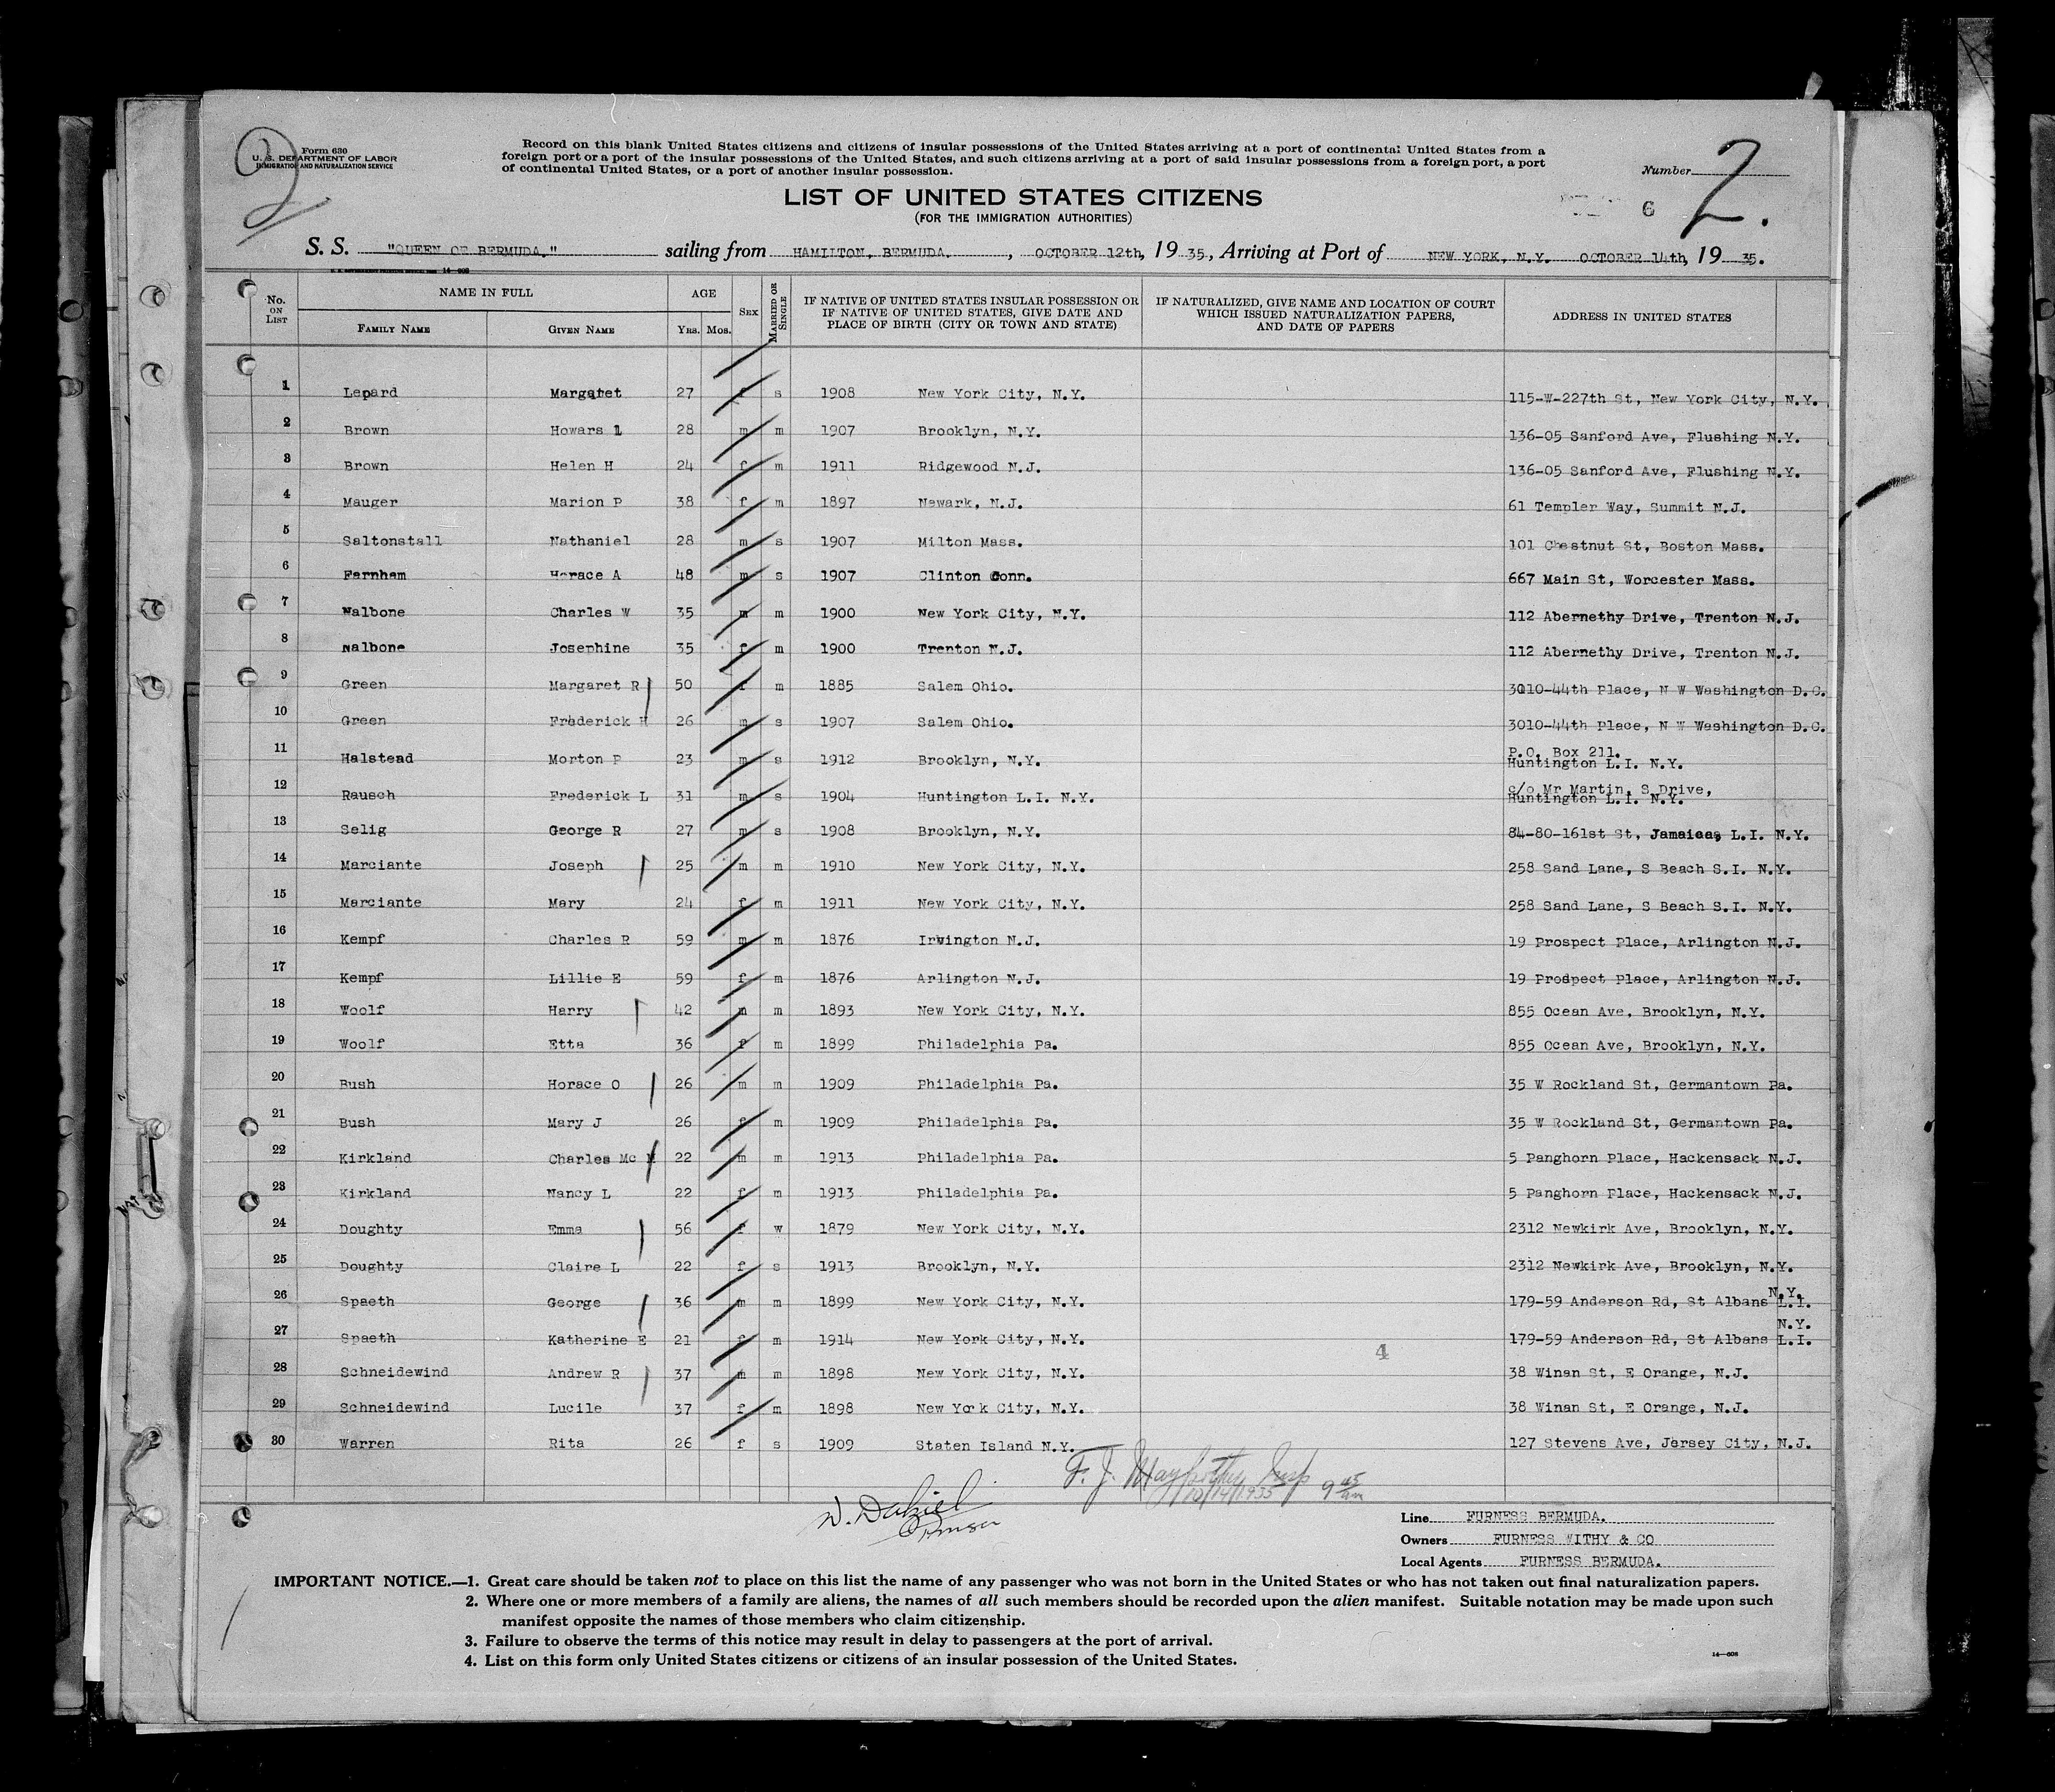 Form 630
U. S. DEPARTMENT OF LABOR
IMMIGRATION AND NATURALIZATION SERVICE
Record on this blank United States citizens and citizens of insular possessions of the United States arriving at a port of continental United States from a
foreign port or a port of the insular possessions of the United States, and such citizens arriving at a port of said insular possessions from a foreign port, a port
of continental United States, or a port of another insular possession.
Number 2.
6
LIST OF UNITED STATES CITIZENS
(FOR THE IMMIGRATION AUTHORITIES)
S. S. "QUEEN OF BERMUDA." sailing from HAMILTON, BERMUDA. , OCTOBER 12th, 19 35, Arriving at Port of NEW YORK, N.Y. OCTOBER 14th, 19 35.
No. ON LIST
NAME IN FULL
FAMILY NAME GIVEN NAME
AGE
YRS. MOS.
SEX
MARRIED OR SINGLE
IF NATIVE OF UNITED STATES INSULAR POSSESSION OR
IF NATIVE OF UNITED STATES, GIVE DATE AND
PLACE OF BIRTH (CITY OR TOWN AND STATE)
IF NATURALIZED, GIVE NAME AND LOCATION OF COURT
WHICH ISSUED NATURALIZATION PAPERS,
AND DATE OF PAPERS
ADDRESS IN UNITED STATES
1 Lepard Margaret 27 f s 1908 New York City, N.Y. 115-W-227th St, New York City, N.Y.
2 Brown Howars L 28 m m 1907 Brooklyn, N.Y. 136-05 Sanford Ave, Flushing N.Y.
3 Brown Helen H 24 f m 1911 Ridgewood N.J. 136-05 Sanford Ave, Flushing N.Y.
4 Mauger Marion P 38 f m 1897 Newark, N.J. 61 Templer Way, Summit N.J.
5 Saltonstall Nathaniel 28 m s 1907 Milton Mass. 101 Chestnut St, Boston Mass.
6 Farnham Horace A 48 m s 1907 Clinton Conn. 667 Main St, Worcester Mass.
7 Nalbone Charles W 35 m m 1900 New York City, N.Y. 112 Abernethy Drive, Trenton N.J.
8 Nalbone Josephine 35 f m 1900 Trenton N.J. 112 Abernethy Drive, Trenton N.J.
9 Green Margaret R 50 f m 1885 Salem Ohio. 3010-44th Place, N W Washington D.C.
10 Green Frederick H 26 m s 1907 Salem Ohio. 3010-44th Place, N W Washington D.C.
11 Halstead Morton P 23 m s 1912 Brooklyn, N.Y. P.O. Box 211.
Huntington L.I. N.Y.
12 Rausch Frederick L 31 m s 1904 Huntington L.I. N.Y. c/o Mr Martin, S Drive,
Huntington L.I. N.Y.
13 Selig George R 27 m s 1908 Brooklyn, N.Y. 84-80-161st St, Jamaica, L.I. N.Y.
14 Marciante Joseph 25 m m 1910 New York City, N.Y. 258 Sand Lane, S Beach S.I. N.Y.
15 Marciante Mary 24 f m 1911 New York City, N.Y. 258 Sand Lane, S Beach S.I. N.Y.
16 Kempf Charles R 59 m m 1876 Irvington N.J. 19 Prospect Place, Arlington N.J.
17 Kempf Lillie E 59 f m 1876 Arlington N.J. 19 Prospect Place, Arlington N.J.
18 Woolf Harry 42 m m 1893 New York City, N.Y. 855 Ocean Ave, Brooklyn, N.Y.
19 Woolf Etta 36 f m 1899 Philadelphia Pa. 855 Ocean Ave, Brooklyn, N.Y.
20 Bush Horace O 26 m m 1909 Philadelphia Pa. 35 W Rockland St, Germantown Pa.
21 Bush Mary J 26 f m 1909 Philadelphia Pa. 35 W Rockland St, Germantown Pa.
22 Kirkland Charles Mc 22 m m 1913 Philadelphia Pa. 5 Panghorn Place, Hackensack N.J.
23 Kirkland Nancy L 22 f m 1913 Philadelphia Pa. 5 Panghorn Place, Hackensack N.J.
24 Doughty Emma 56 f w 1879 New York City, N.Y. 2312 Newkirk Ave, Brooklyn, N.Y.
25 Doughty Claire L 22 f s 1913 Brooklyn, N.Y. 2312 Newkirk Ave, Brooklyn, N.Y.
26 Spaeth George 36 m m 1899 New York City, N.Y. 179-59 Anderson Rd, St Albans L.I. N.Y.
27 Spaeth Katherine E 21 f m 1914 New York City, N.Y. 179-59 Anderson Rd, St Albans L.I. N.Y.
4
28 Schneidewind Andrew R 37 m m 1898 New York City, N.Y. 38 Winan St, E Orange, N.J.
29 Schneidewind Lucile 37 f m 1898 New York City, N.Y. 38 Winan St, E Orange, N.J.
30 Warren Rita 26 f s 1909 Staten Island N.Y. 127 Stevens Ave, Jersey City, N.J.
F. J. Insp
10/14/1935 9 45 am
Line FURNESS BERMUDA.
Owners FURNESS WITHY & CO
Local Agents FURNESS BERMUDA.
IMPORTANT NOTICE.—1. Great care should be taken not to place on this list the name of any passenger who was not born in the United States or who has not taken out final naturalization papers.
2. Where one or more members of a family are aliens, the names of all such members should be recorded upon the alien manifest. Suitable notation may be made upon such
manifest opposite the names of those members who claim citizenship.
3. Failure to observe the terms of this notice may result in delay to passengers at the port of arrival.
4. List on this form only United States citizens or citizens of an insular possession of the United States.
14—608